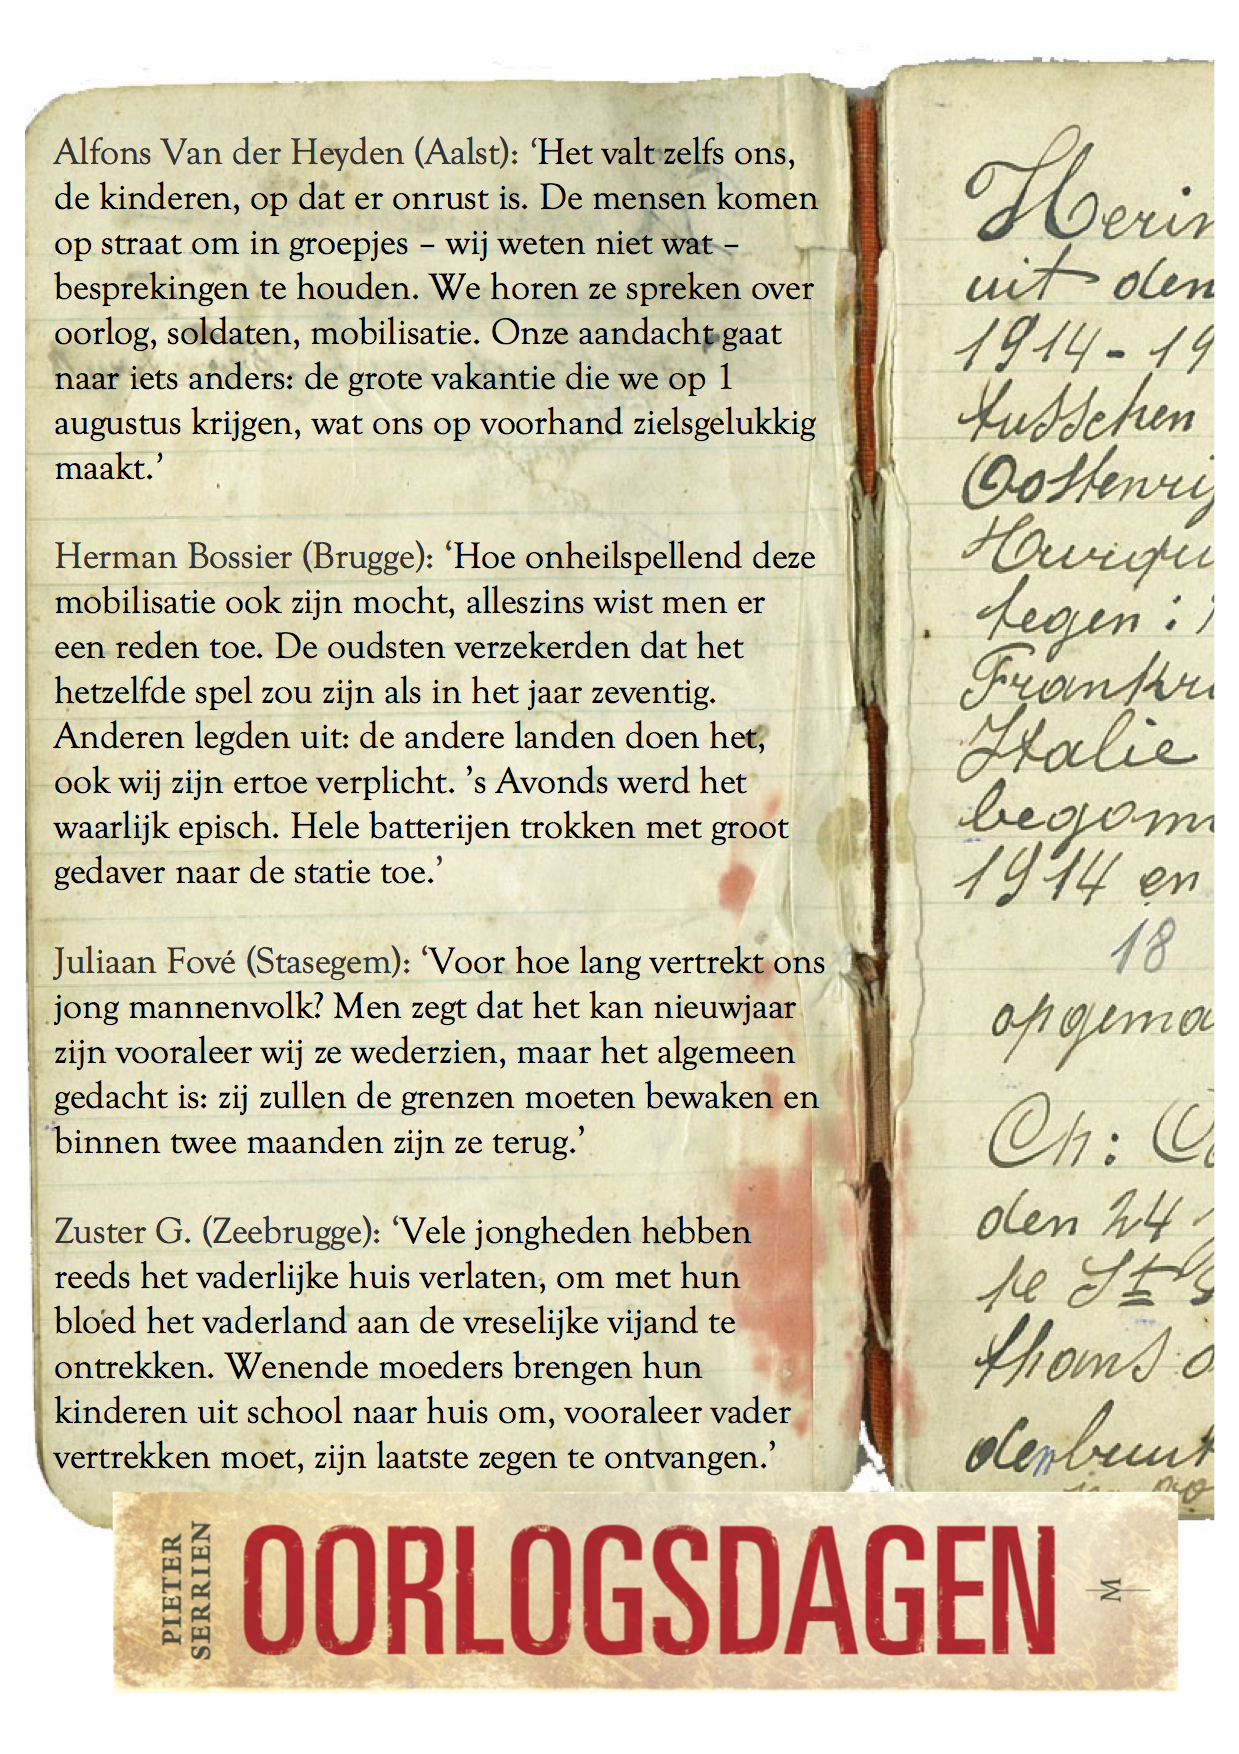 Alfons Van der Heyden (Aalst): ‘Het valt zelfs ons,
de kinderen, op dat er onrust is. De mensen komen
op straat om in groepjes – wij weten niet wat –
besprekingen te houden. We horen ze spreken over
oorlog, soldaten, mobilisatie. Onze aandacht gaat
naar iets anders: de grote vakantie die we op 1
augustus krijgen, wat ons op voorhand zielsgelukkig
maakt.’
Herman Bossier (Brugge): ‘Hoe onheilspellend deze
mobilisatie ook zijn mocht, alleszins wist men er
een reden toe. De oudsten verzekerden dat het
hetzelfde spel zou zijn als in het jaar zeventig.
Anderen legden uit: de andere landen doen het,
ook wij zijn ertoe verplicht. ’s Avonds werd het
waarlijk episch. Hele batterijen trokken met groot
gedaver naar de statie toe.’
Juliaan Fové (Stasegem): ‘Voor hoe lang vertrekt ons
jong mannenvolk? Men zegt dat het kan nieuwjaar
zijn vooraleer wij ze wederzien, maar het algemeen
gedacht is: zij zullen de grenzen moeten bewaken en
binnen twee maanden zijn ze terug.’
Zuster G. (Zeebrugge): ‘Vele jongheden hebben
reeds het vaderlijke huis verlaten, om met hun
bloed het vaderland aan de vreselijke vijand te
ontrekken. Wenende moeders brengen hun
kinderen uit school naar huis om, vooraleer vader
vertrekken moet, zijn laatste zegen te ontvangen.’
Herin
uit den
1914-19
tusschen
Oostenrij
tegen :
Frankri
Italie
begonn
1914 en
18
opgema
Ch:
den 24
te St
thans
PIETER
SERRIEN
OORLOGSDAGEN
M